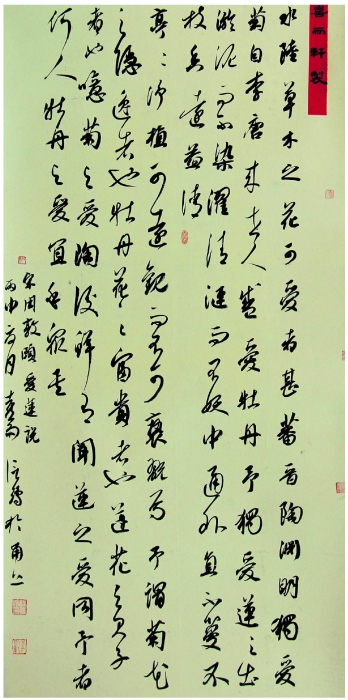 喜雨軒製
水陸草木之花可愛者甚蕃晉陶淵明獨愛
菊自李唐來世人盛愛牡丹予獨愛蓮之出
淤泥而不染濯清漣而不妖中通外直不蔓不
枝香遠益清
亭々净植可遠觀而不可褻翫焉予謂菊花
之隱逸者也牡丹花之富貴者也蓮花之君子
者也噫菊之愛陶後鮮有聞蓮之愛同予者
何人牡丹之愛宜乎衆矣
宋周敦頤愛蓮說
丙申 月 於甬上